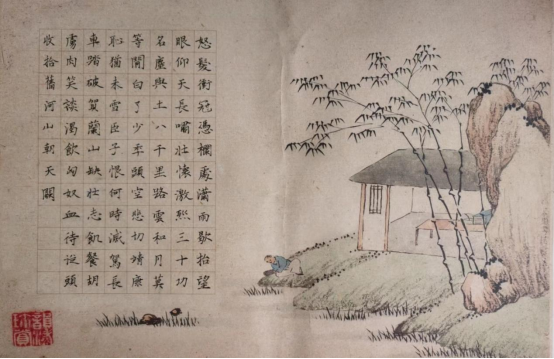 怒髮衝冠憑欄處瀟雨歇抬望
眼仰天長嘯壯懷激烈三十功
名塵與土八千里路雲和月莫
等閒白了少年頭空悲切靖康
恥猶未雪臣子恨何時滅駕長
車踏破賀蘭山缺壯志飢餐胡
虜肉笑談渴飲匈奴血待從頭
收拾舊河山朝天闕